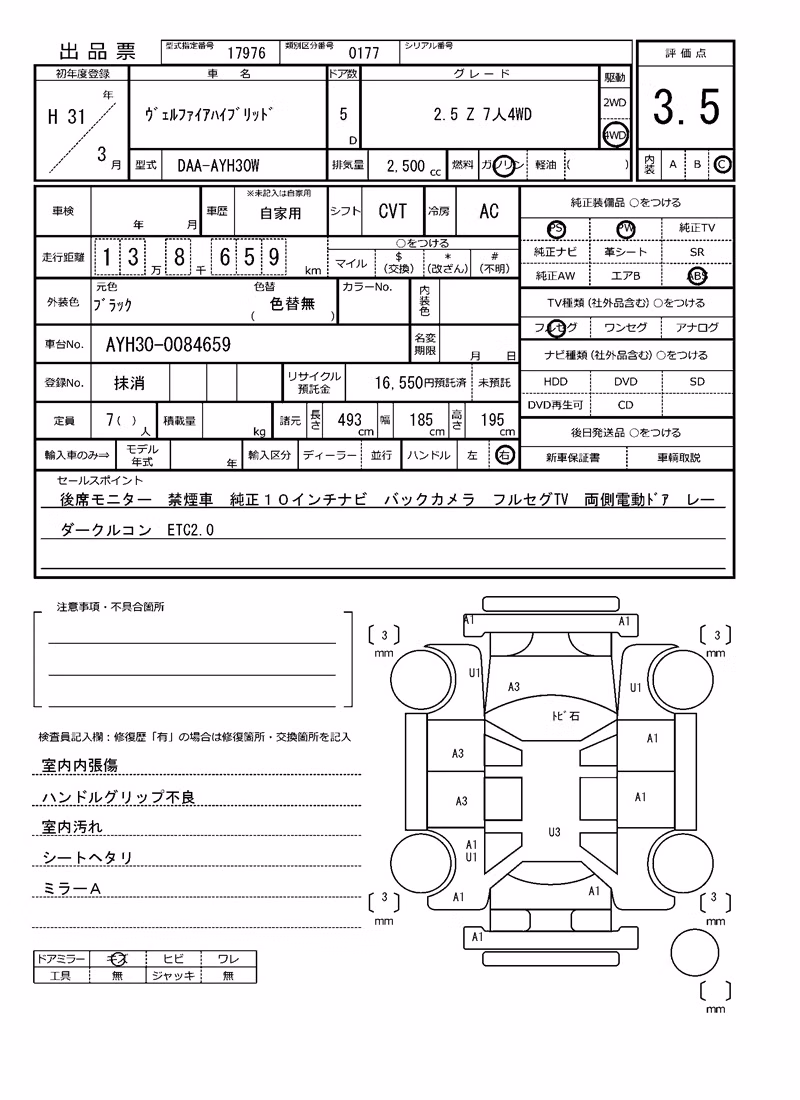 出品票 型式指定番号 17976 類別区分番号 0177 シリアル番号
評価点
3.5
内装 A B C
初年度登録 車名 ドア数 グレード 駆動
H 31 年 3 月 ヴェルファイアハイブリッド 5 D 2.5 Z 7人4WD 2WD
4WD
型式 DAA-AYH30W 排気量 2,500 cc 燃料 ガソリン 軽油 ( )
車検 年 月 車歴 ※未記入は自家用 自家用 シフト CVT 冷房 AC
走行距離 13万8千659 km ○をつける
マイル $(交換) *(改ざん) #(不明)
外装色 元色 ブラック 色替 ( 色替無 ) カラーNo. 内装色
車台No. AYH30-0084659 名変期限 月 日
登録No. 抹消 リサイクル預託金 16,550円預託済 未預託
定員 7( )人 積載量 kg 諸元 長さ 493cm 幅 185cm 高さ 195cm
輸入車のみ⇒ モデル年式 年 輸入区分 ディーラー 並行 ハンドル 左 右
純正装備品 ○をつける
PS PW 純正TV
純正ナビ 革シート SR
純正AW エアB ABS
TV種類(社外品含む)○をつける
フルセグ ワンセグ アナログ
ナビ種類(社外品含む)○をつける
HDD DVD SD
DVD再生可 CD
後日発送品 ○をつける
新車保証書 車輌取説
セールスポイント
後席モニター 禁煙車 純正10インチナビ バックカメラ フルセグTV 両側電動ドア レー
ダークルコン ETC2.0
注意事項・不具合箇所
検査員記入欄：修復歴「有」の場合は修復箇所・交換箇所を記入
室内内張傷
ハンドルグリップ不良
室内汚れ
シートヘタリ
ミラーA
ドアミラー キズ ヒビ ワレ
工具 無 ジャッキ 無
A1 A1
3 mm 3 mm
U1 A3 U1
トビ石
A3 A1
A3 A1
U3
A1
U1
A1 A1
3 mm 3 mm
A1
mm